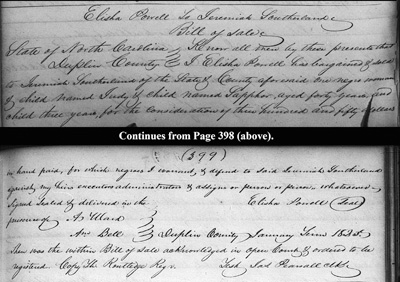 Elisha Powell To Jeremiah Southerland
Bill of Sale
State of North Carolina } Know all men by these presents that
Duplin County } I Elisha Powell has bargained & sold
to Jeremiah Southerland of the State & County aforesaid one negro woman
& child named Judy & child named Sapphor, aged forty years, and
child three years, for the consideration of three hundred and fifty dollars
Continues from Page 398 (above).
(399)
in hand paid, for which negroes I warrant, & defend to said Jeremiah Southerland
against, my heirs executors administrators & assigns or person or persons whatsoever
Signed Sealed & delivered in the Elisha Powell (Seal)
presence of As Ward
Bell } Duplin County January Term 1835.
Then was the within Bill of Sale acknowledged in open Court & ordered to be
registered Copy Routledge Regr. Test Jas Pearsall Clk